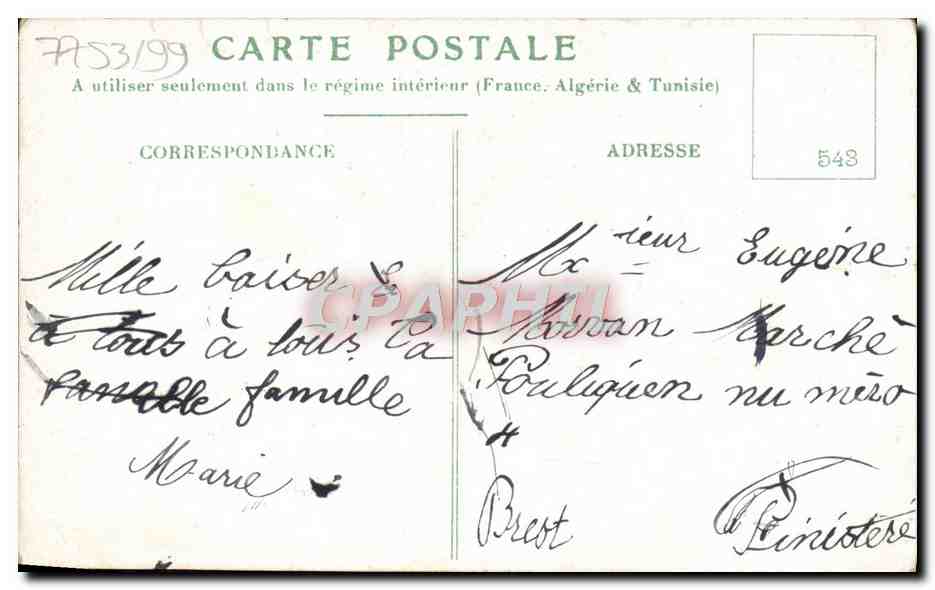 7753/99
CARTE POSTALE
A utiliser seulement dans le régime intérieur (France, Algérie & Tunisie)
CORRESPONDANCE
ADRESSE
543
Mille baiser
à tous à tous la
famille famille
Marie
Mxieur Eugéne
Morvan Marchè
Pouliquen nu mèro
4
Brest
Finistére
CPAPHIL